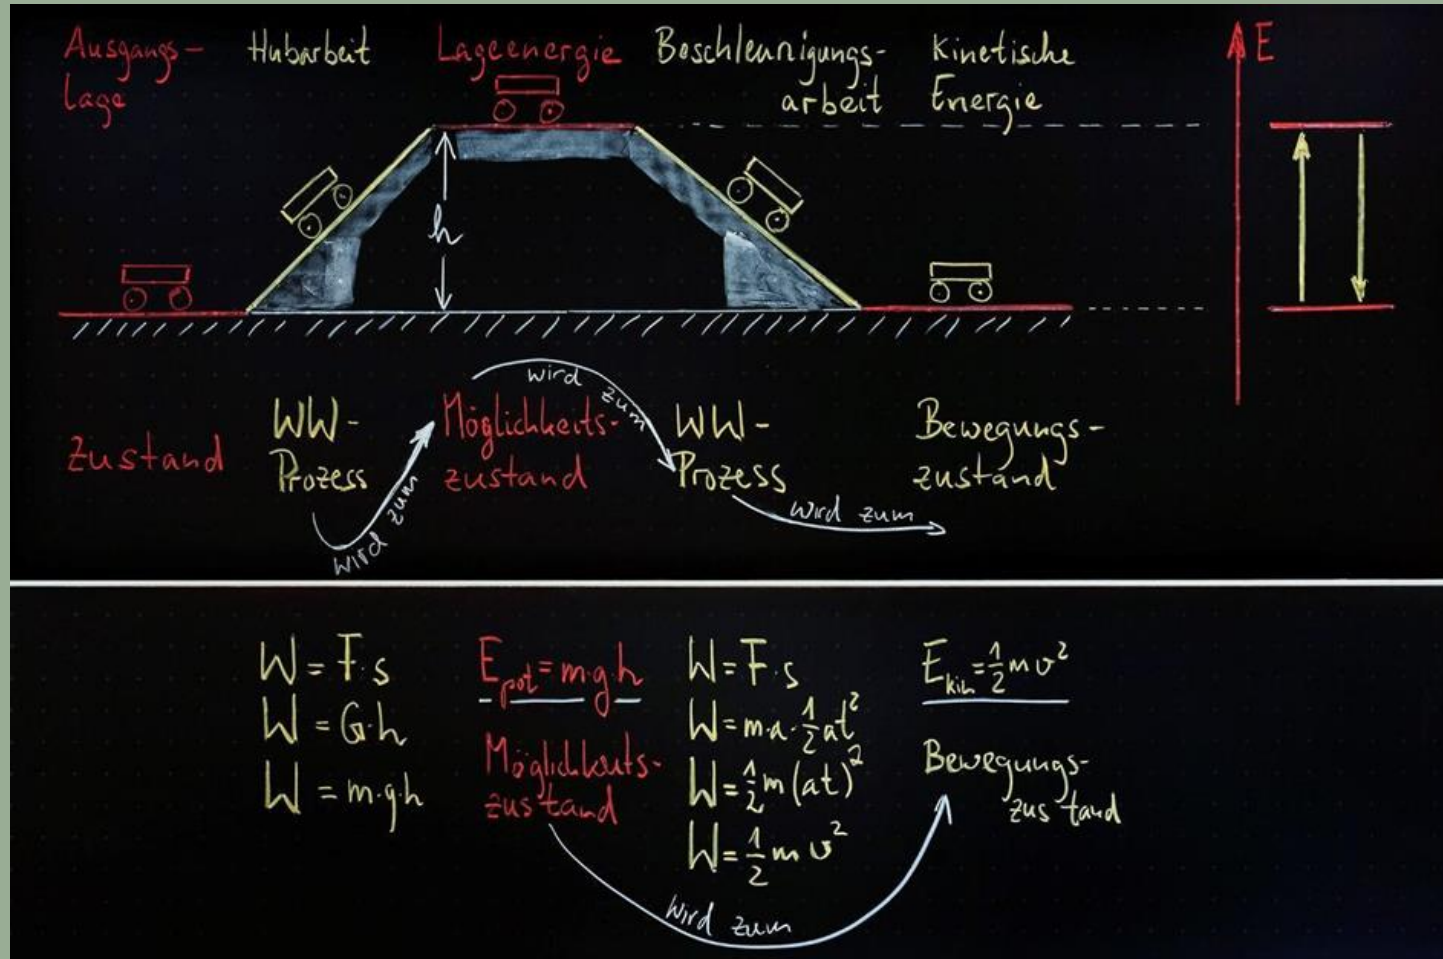 Ausgangs-
lage
Hubarbeit
Lageenergie
Beschleunigungs-
arbeit
Kinetische
Energie
E
h
Zustand
WW-
Prozess
wird zum
Möglichkeits-
zustand
wird zum
WW-
Prozess
wird zum
Bewegungs-
zustand
W = F·s
W = G·h
W = m·g·h
E_pot = m·g·h
Möglichkeits-
zustand
wird zum
W = F·s
W = m·a·½at²
W = ½m(at)²
W = ½mv²
E_kin = ½mv²
Bewegungs-
zustand